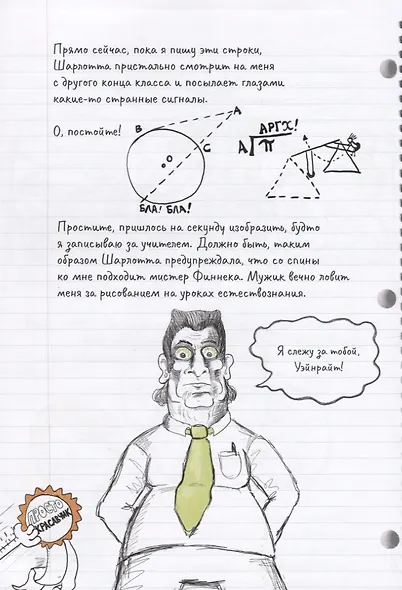 Прямо сейчас, пока я пишу эти строки,
Шарлотта пристально смотрит на меня
с другого конца класса и посылает глазами
какие-то странные сигналы.
О, постойте!
A
B
C
O
БЛА! БЛА!
АРГХ!
A √π
Простите, пришлось на секунду изобразить, будто
я записываю за учителем. Должно быть, таким
образом Шарлотта предупреждала, что со спины
ко мне подходит мистер Финнека. Мужик вечно ловит
меня за рисованием на уроках естествознания.
Я слежу за тобой,
Уэйнрайт!
ПРОСТО
КРАСАВЧИК